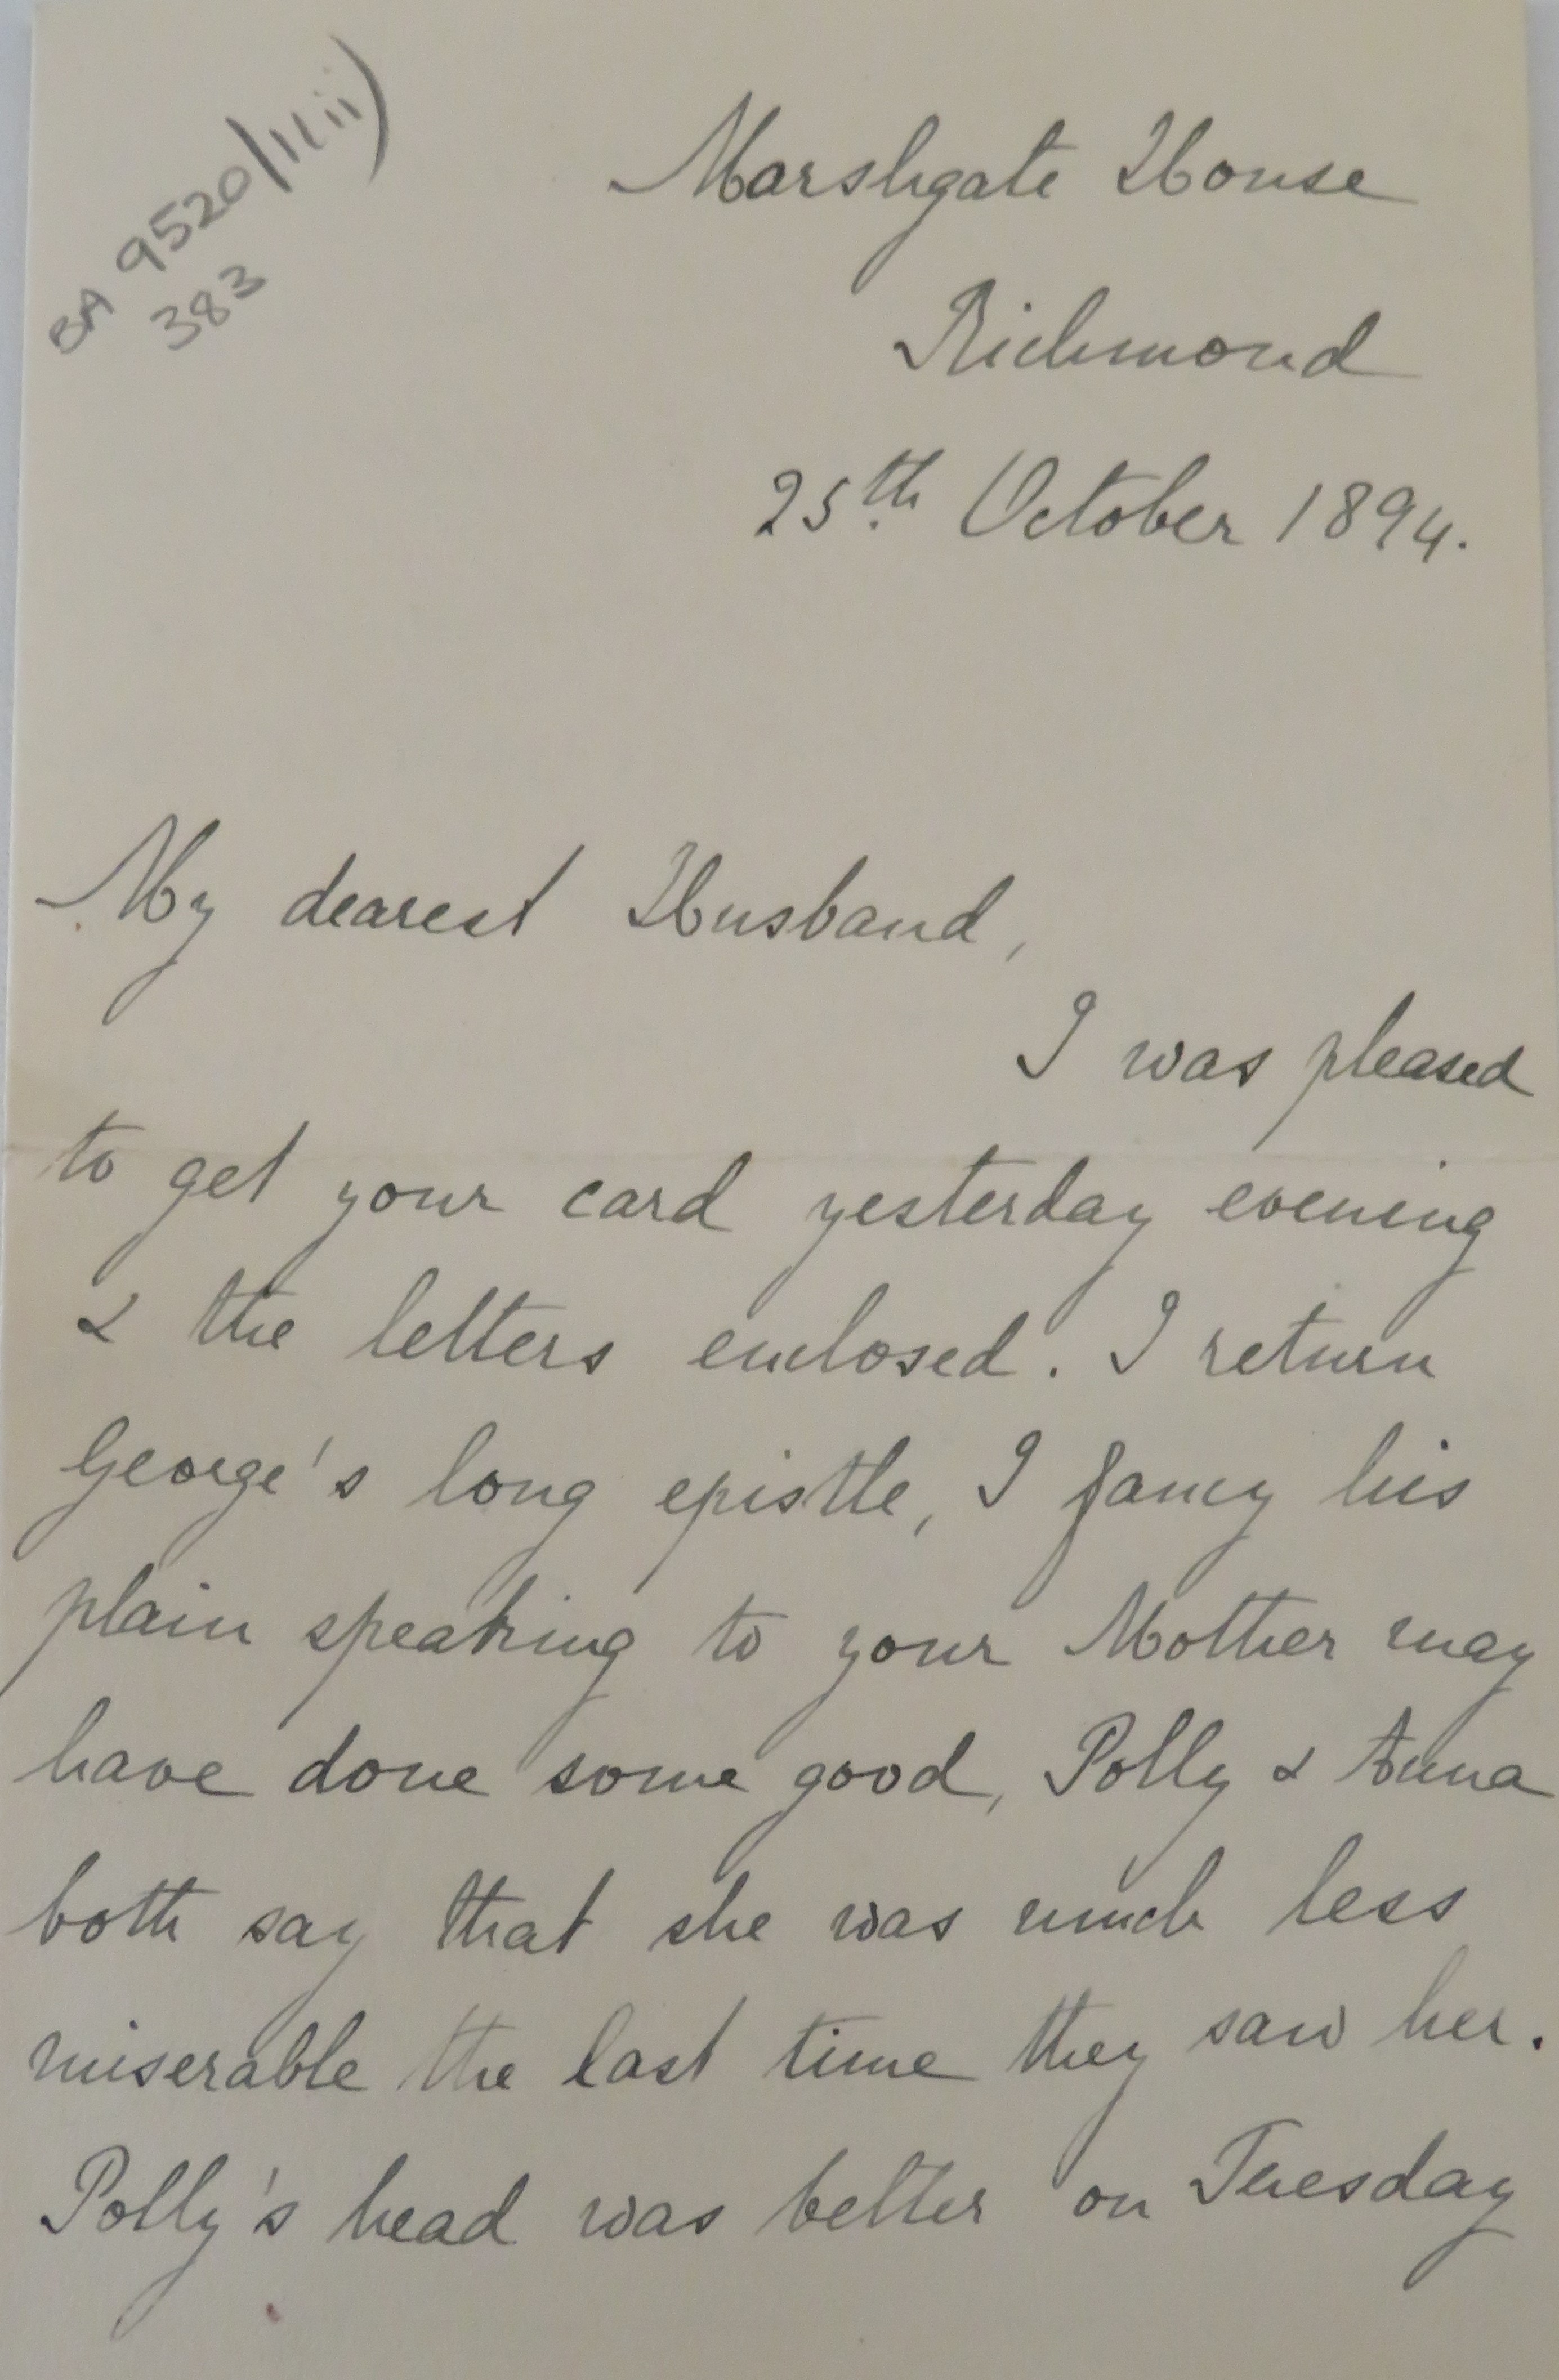 BA 9520/11(ii)
383
Marshgate House
Richmond
25th October 1894.
My dearest Husband,
I was pleased
to get your card yesterday evening
& the letters enclosed. I return
George's long epistle, I fancy his
plain speaking to your Mother may
have done some good, Polly & Anna
both say that she was much less
miserable the last time they saw her.
Polly's head was better on Tuesday